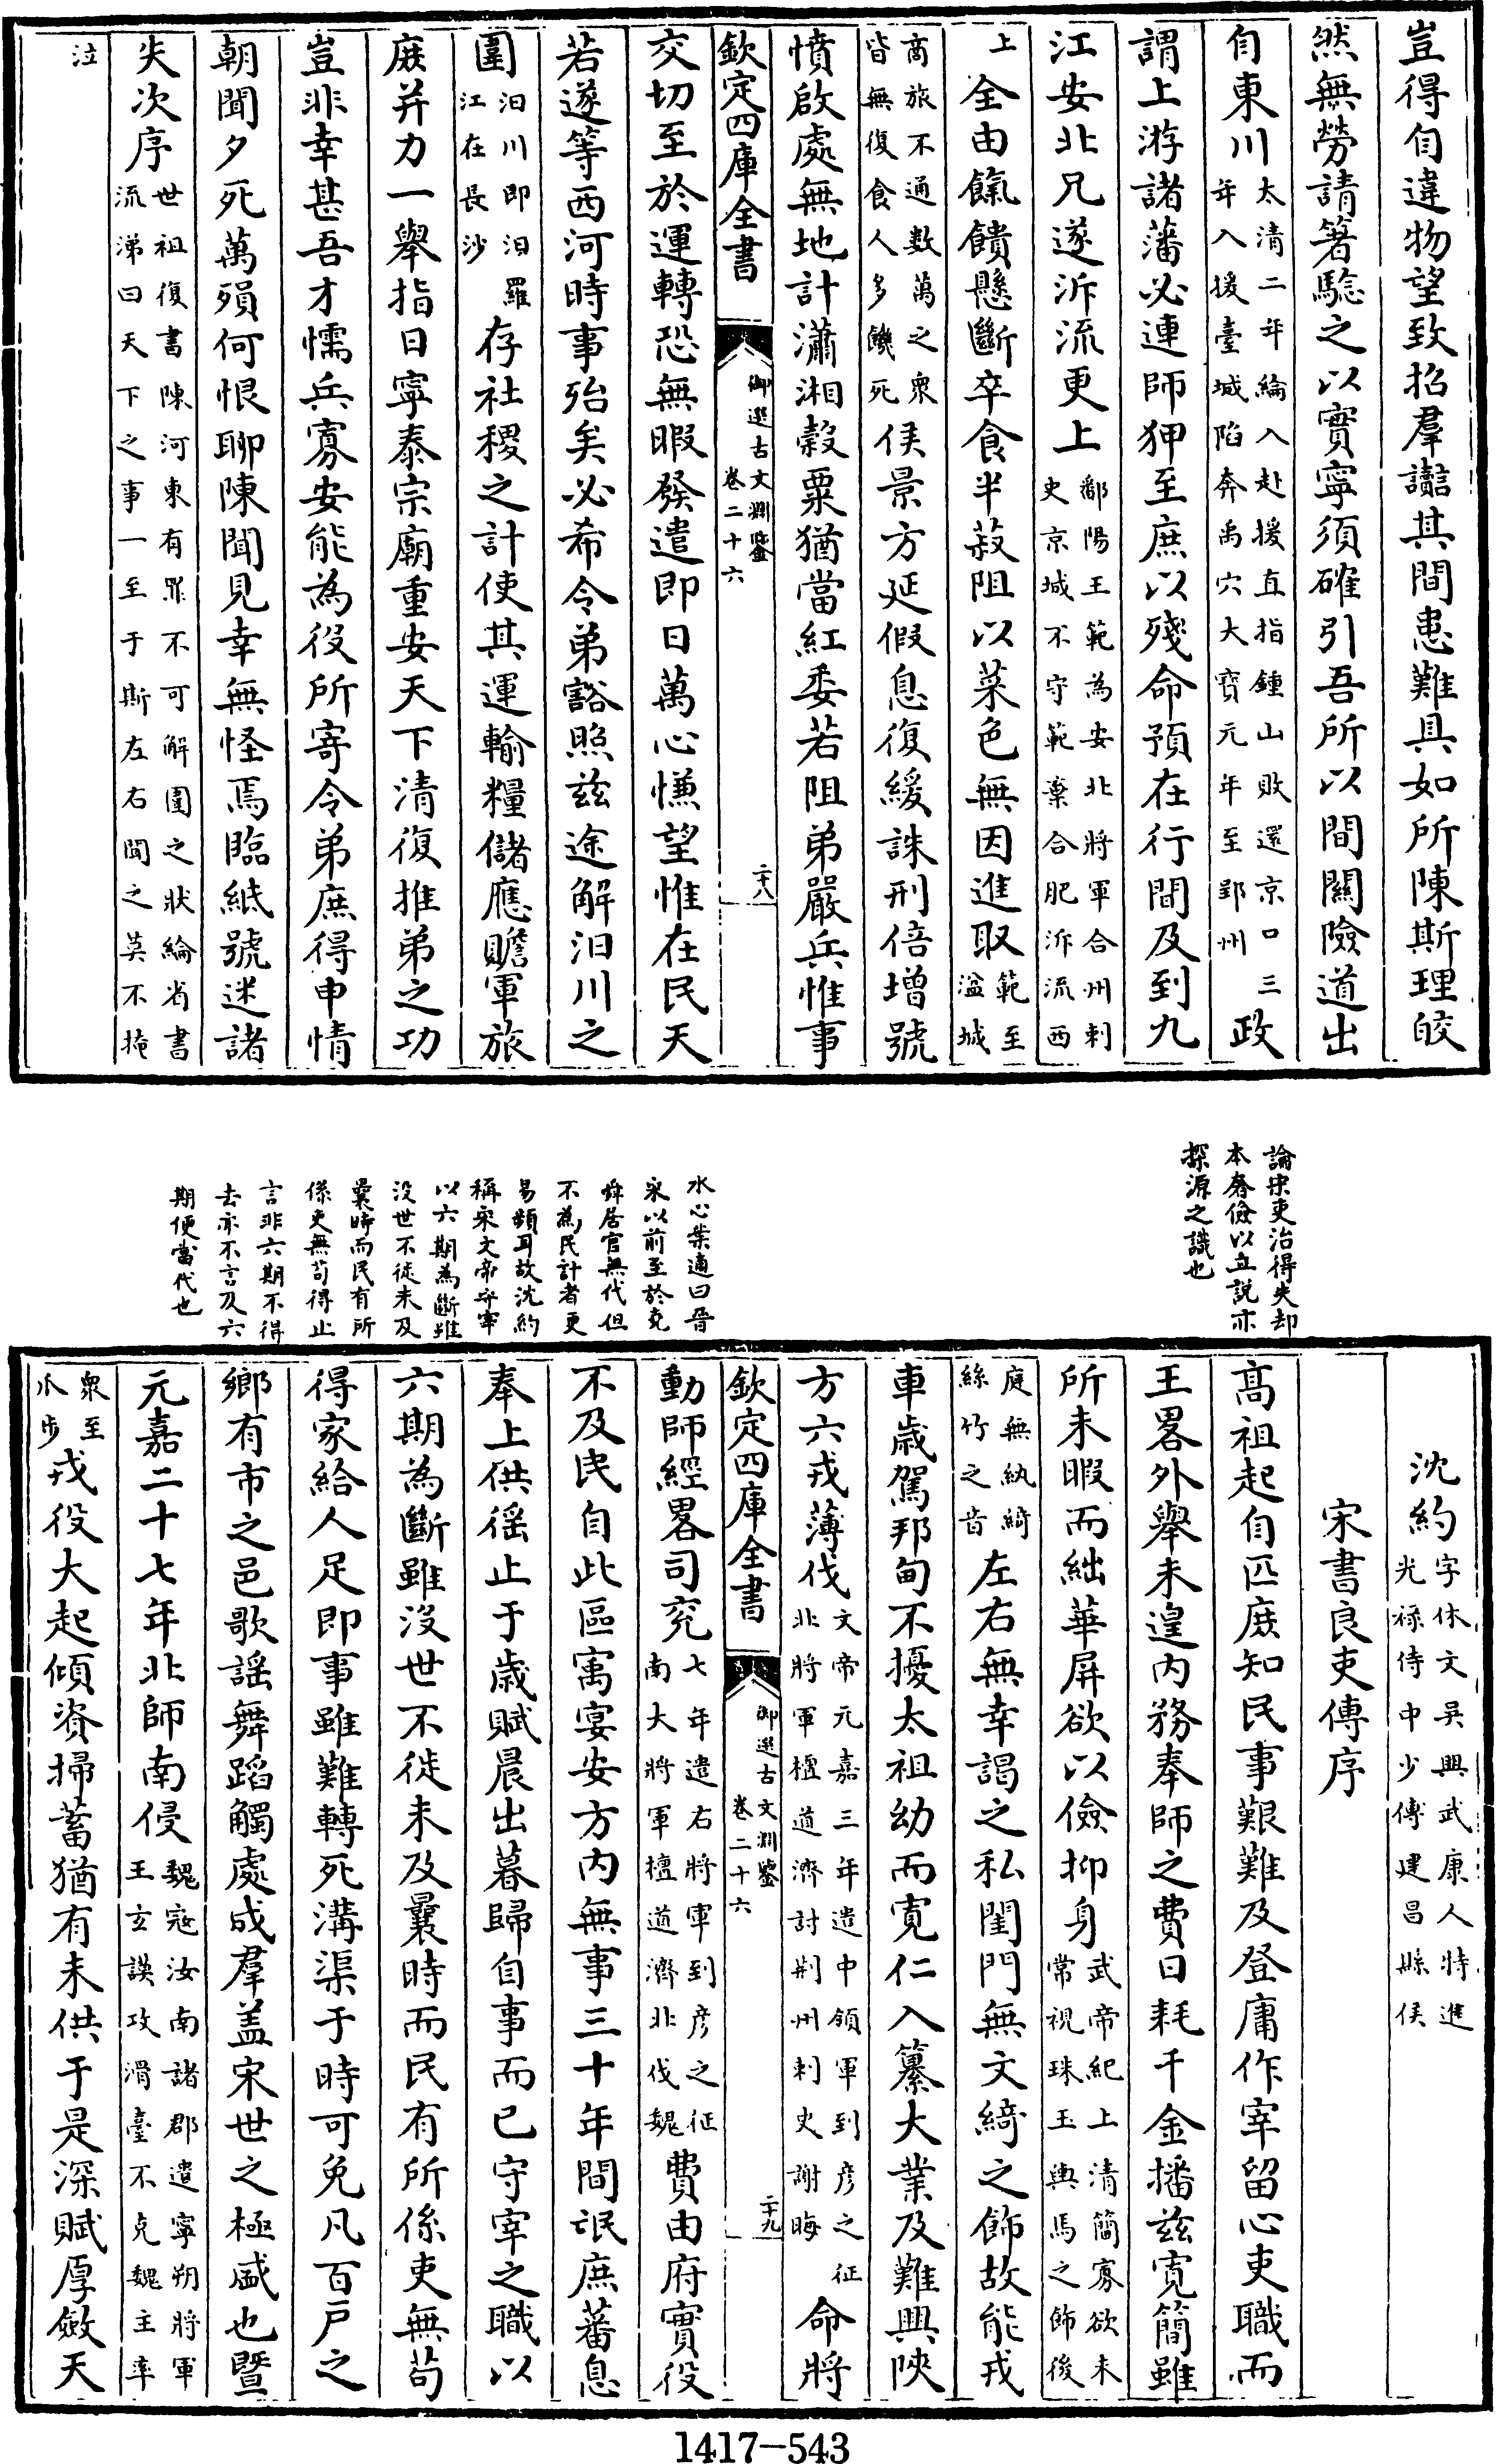 豈得自違物望致招羣讟其間患難具如所陳斯理皎
然無勞請箸騐之以實寧須確引吾所以間關險道出
自東川太清二年綸入赴援直指鍾山敗還京口三年入援臺城陷奔禹穴大寶元年至郢州政
謂上游諸藩必連師狎至庶以殘命預在行間及到九
江安北兄遂泝流更上鄱陽王範為安北將軍合州刺史京城不守範棄合肥泝流西
上全由餼饋懸斷卒食半菽阻以菜色無因進取範至湓城
商旅不通數萬之衆皆無復食人多饑死侯景方延假息復緩誅刑倍增號
憤啟處無地計瀟湘穀粟猶當紅委若阻弟嚴兵惟事
欽定四庫全書
御選古文淵鑒
卷二十六
二十八
交切至於運轉恐無暇發遣即日萬心慊望惟在民天
若遂等西河時事殆矣必希令弟豁照兹途解汨川之
圍汨川即汨羅江在長沙存社稷之計使其運輸糧儲應贍軍旅
庶并力一舉指日寧泰宗廟重安天下清復推弟之功
豈非幸甚吾才懦兵寡安能為役所寄令弟庶得申情
朝聞夕死萬殞何恨聊陳聞見幸無怪焉臨紙號迷諸
失次序世祖復書陳河東有罪不可解圍之狀綸省書流涕曰天下之事一至于斯左右聞之莫不掩
泣
論宋吏治得失却
本奢儉以立説亦
探源之識也
水心葉適曰晉
宋以前至於堯
舜居官無代但
不為民計者更
易頻耳故沈約
稱宋文帝守宰
以六期為斷雖
没世不徙未及
曩時而民有所
係吏無苟得止
言非六期不得
去亦不言及六
期便當代也
沈約字休文吳興武康人特進光祿侍中少傅建昌縣侯
宋書良吏傳序
髙祖起自匹庶知民事艱難及登庸作宰留心吏職而
王畧外舉未遑内務奉師之費日耗千金播兹寛簡雖
所未暇而絀華屏欲以儉抑身武帝紀上清簡寡欲未常視珠玉輿馬之飾後
庭無紈綺絲竹之音左右無幸謁之私閨門無文綺之飾故能戎
車歲駕邦甸不擾太祖幼而寛仁入纂大業及難興陜
方六戎薄伐文帝元嘉三年遣中領軍到彦之征北將軍檀道濟討荆州刺史謝晦命將
欽定四庫全書
御選古文淵鑒
卷二十六
二十九
動師經畧司兖七年遣右將軍到彦之征南大將軍檀道濟北伐魏費由府實役
不及民自此區寓宴安方内無事三十年間氓庶蕃息
奉上供徭止于歲賦晨出暮歸自事而已守宰之職以
六期為斷雖没世不徙未及曩時而民有所係吏無苟
得家給人足即事雖難轉死溝渠于時可免凡百戸之
鄉有市之邑歌謡舞蹈觸處成羣盖宋世之極盛也暨
元嘉二十七年北師南侵魏寇汝南諸郡遣寧朔將軍王玄謨攻滑臺不克魏主率
衆至瓜步戎役大起傾資掃蓄猶有未供于是深賦厚斂天
1417—543